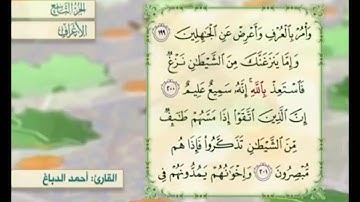 الجزء التاسع
الأعراف
وَأْمُرْ بِالْعُرْفِ وَأَعْرِضْ عَنِ الْجَٰهِلِينَ ١٩٩
وَإِمَّا يَنزَغَنَّكَ مِنَ الشَّيْطَٰنِ نَزْغٌ
فَاسْتَعِذْ بِاللَّهِ إِنَّهُ سَمِيعٌ عَلِيمٌ ٢٠٠
إِنَّ الَّذِينَ اتَّقَوْا إِذَا مَسَّهُمْ طَٰٓئِفٌ
مِّنَ الشَّيْطَٰنِ تَذَكَّرُوا فَإِذَا هُم
مُّبْصِرُونَ ٢٠١ وَإِخْوَٰنُهُمْ يَمُدُّونَهُمْ فِي
القارئ: أحمد الدباغ